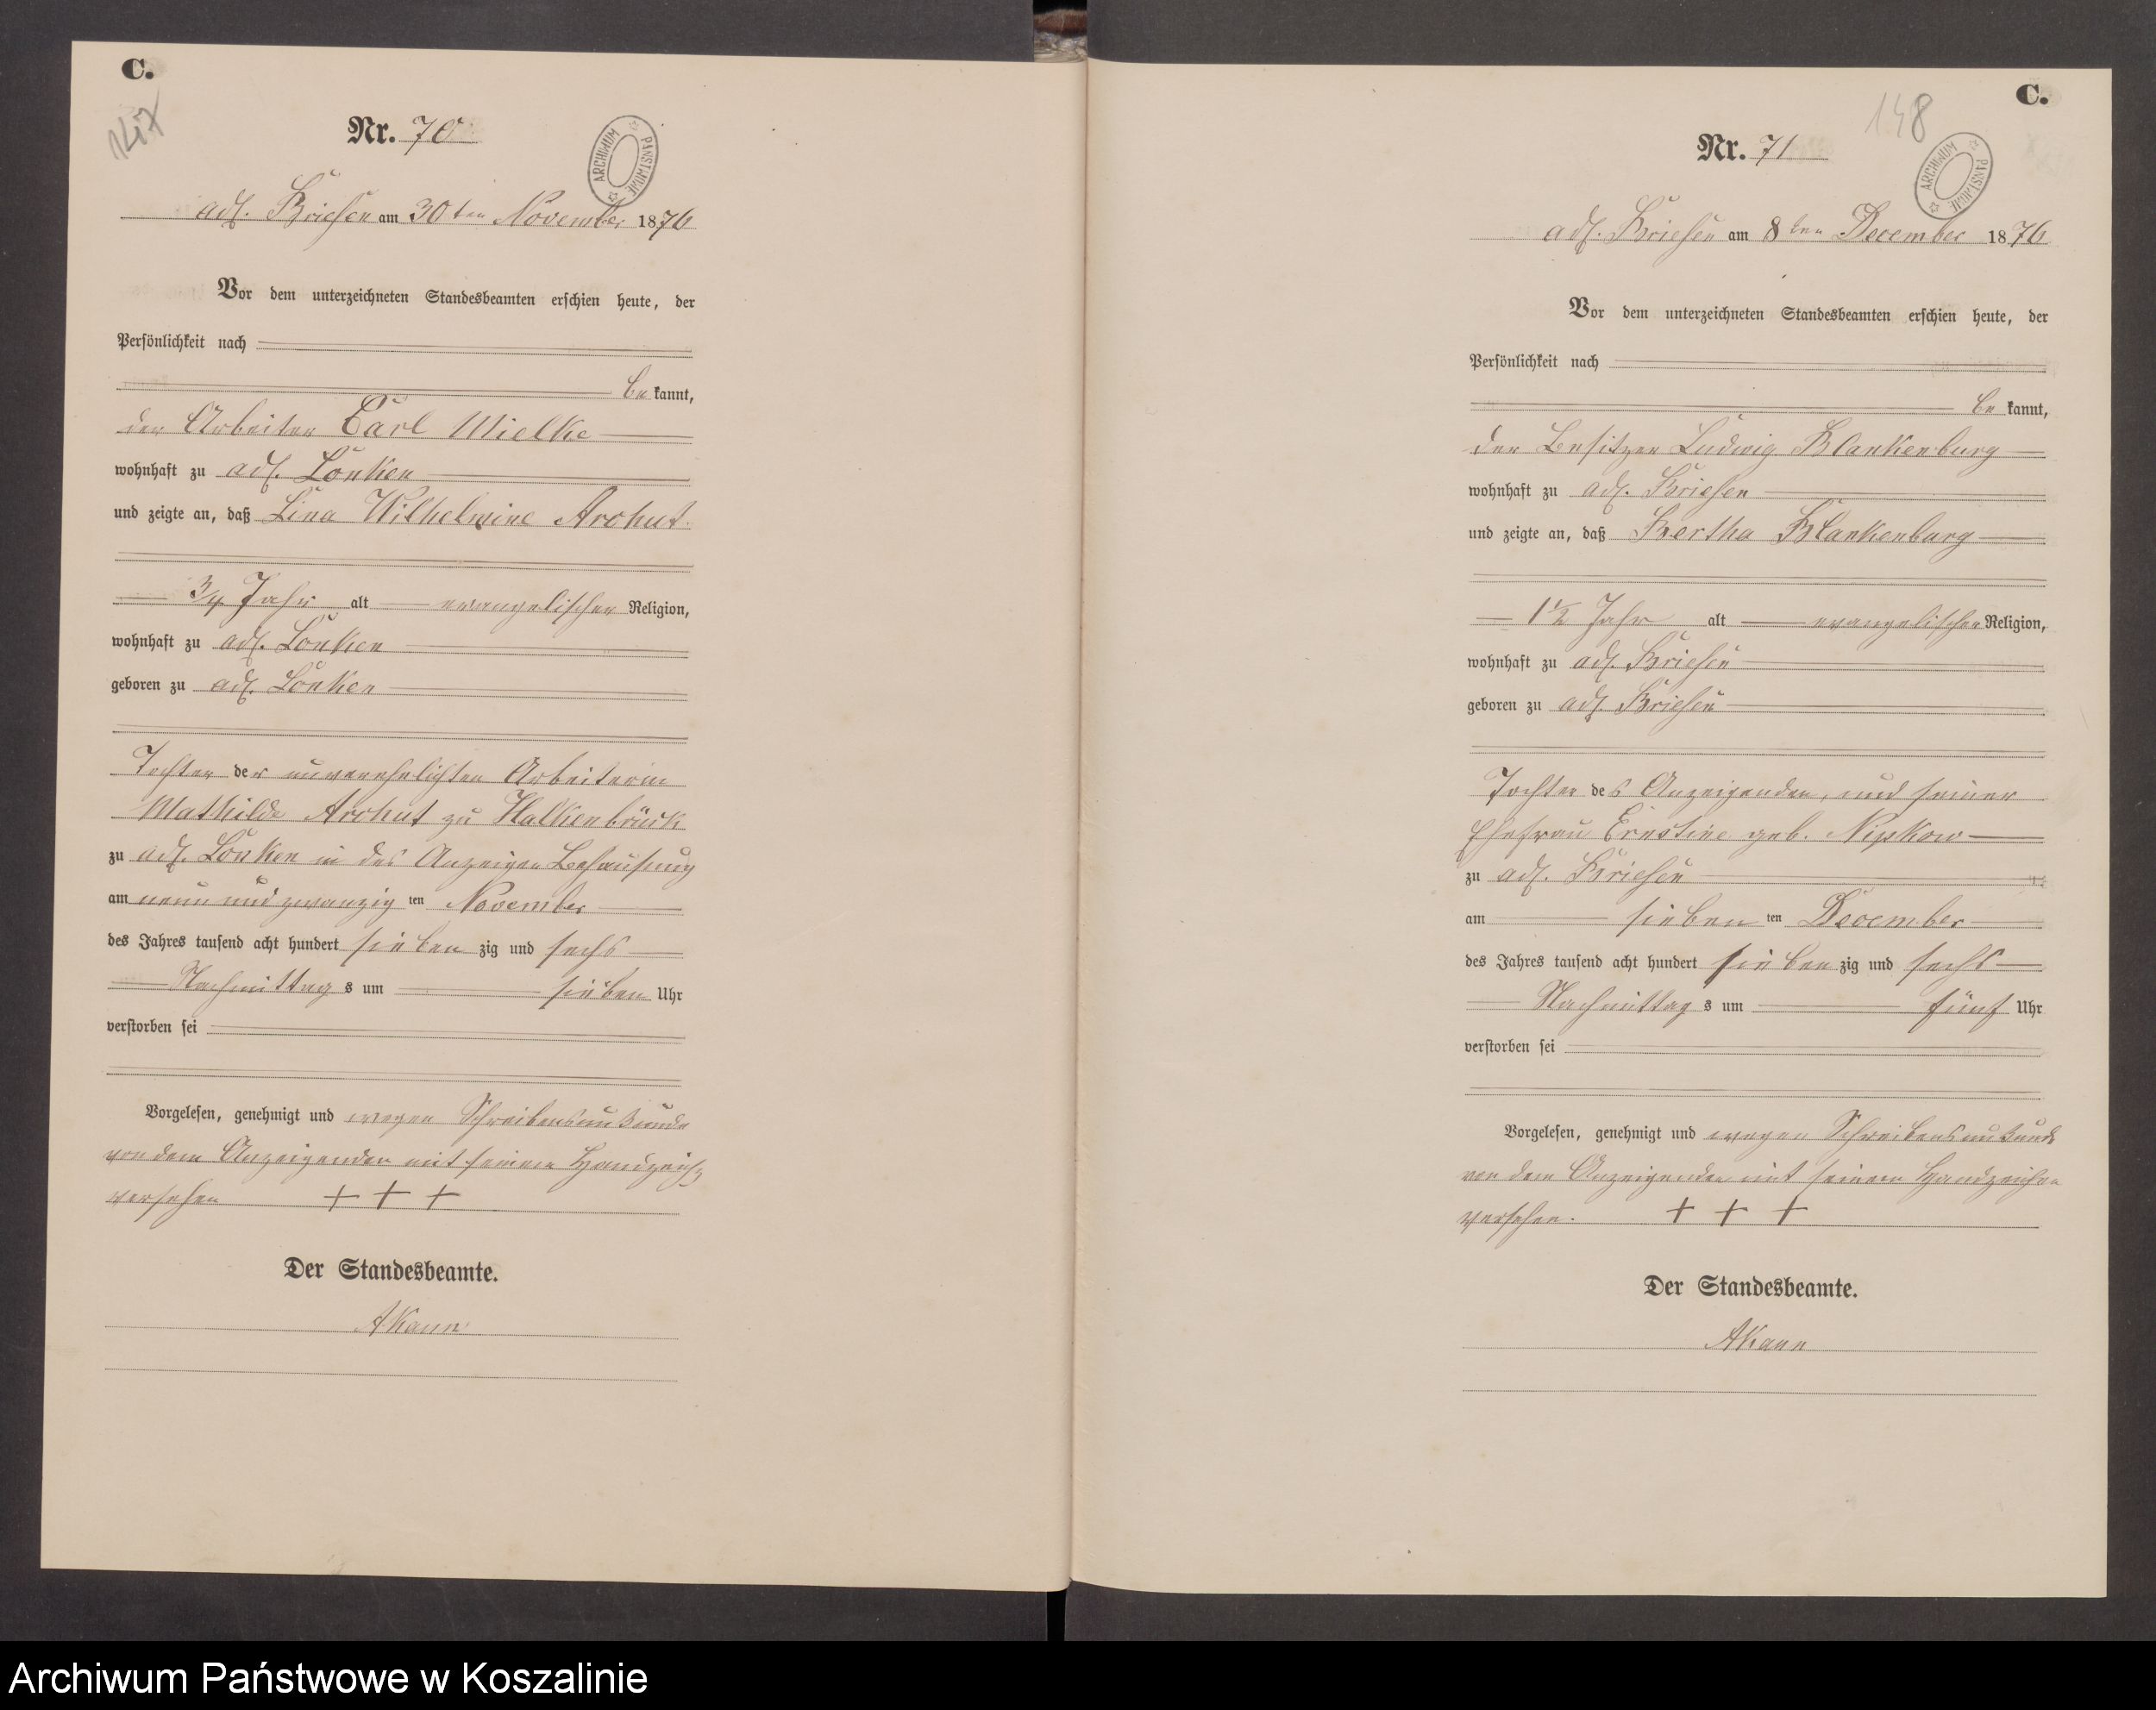 C.
147
Nr. 70
ARCHIWUM PAŃSTWOWE
adl. Briesen am 30ten November 1876
Vor dem unterzeichneten Standesbeamten erschien heute, der
Persönlichkeit nach
bekannt,
der Arbeiter Carl Mielke
wohnhaft zu adl. Lonken
und zeigte an, daß Lina Wilhelmine Archut
3/4 Jahr alt evangelischer Religion,
wohnhaft zu adl. Lonken
geboren zu adl. Lonken
Tochter der unverehelichten Arbeiterin
Mathilde Archut zu
zu adl. Lonken in des Anzeigen Behausung
am neun und zwanzig ten November
des Jahres tausend acht hundert sieben zig und sechs
Nachmittag s um sieben Uhr
verstorben sei
Vorgelesen, genehmigt und wegen Schreibensunkunde
von dem Anzeigenden mit seinem Handzeich
versehen + + +
Der Standesbeamte.
AKann
C.
148
Nr. 71
ARCHIWUM PAŃSTWOWE
adl. Briesen am 8ten December 1876
Vor dem unterzeichneten Standesbeamten erschien heute, der
Persönlichkeit nach
bekannt,
der Besitzer Ludwig Blankenburg
wohnhaft zu adl. Briesen
und zeigte an, daß Bertha Blankenburg
1 1/2 Jahr alt evangelischer Religion,
wohnhaft zu adl. Briesen
geboren zu adl. Briesen
Tochter des Anzeigenden, und seiner
Ehefrau Ernstine geb. Nipkow
zu adl. Briesen
am sieben ten December
des Jahres tausend acht hundert sieben zig und sechs
Nachmittag s um fünf Uhr
verstorben sei
Vorgelesen, genehmigt und wegen Schreibensunkunde
von dem Anzeigenden mit seinem Handzeichen
versehen. + + +
Der Standesbeamte.
AKann
Archiwum Państwowe w Koszalinie